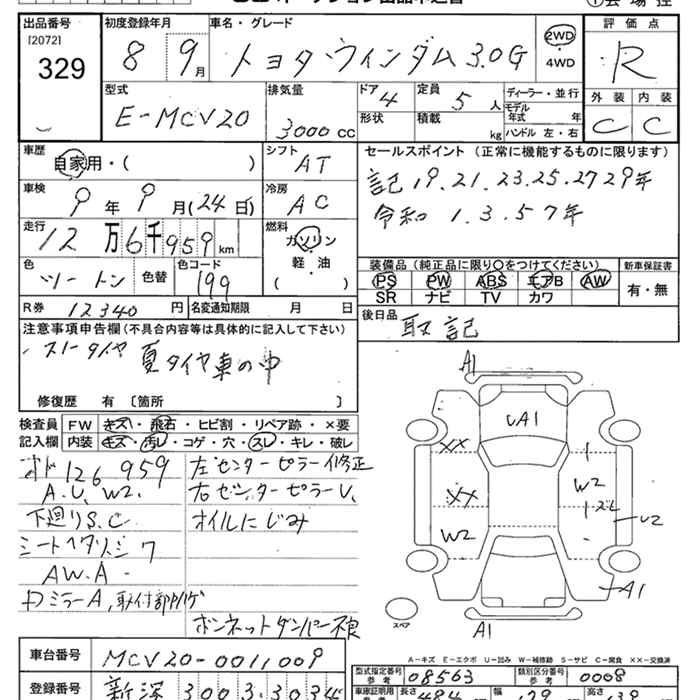 出品番号
[2072]
329
初度登録年月
8年 9月
車名・グレード
トヨタ ウィンダム 3.0G
2WD
4WD
評価点
R
外装 内装
C C
型式
E-MCV20
排気量
3000 cc
ドア 4
形状
定員 5人
積載 kg
ディーラー・並行
モデル年式 年
ハンドル 左・右
車歴
自家用・( )
シフト
AT
車検
9年 9月 (24日)
冷房
AC
走行
12万6千959km
燃料
ガソリン
軽・油
( )
色
ツートン
色替
色コード
199
R券 12340円
名変通知期限 月 日
セールスポイント(正常に機能するものに限ります)
記 19.21.23.25.27 29年
令和 1.3.5 7年
装備品(純正品に限り○をつけてください)
PS PW ABS エアB AW
SR ナビ TV カワ
新車保証書
有・無
後日品
取 記
注意事項申告欄(不具合内容等は具体的に記入して下さい)
スノータイヤ 夏タイヤ車の中
修復歴 有 〔箇所 〕
検査員記入欄
FW キズ・飛石・ヒビ割・リペア跡・×要
内装 キズ・汚レ・コゲ・穴・スレ・キレ・破レ
126959
A.U.W2.
下廻りS.C
シートヘタリ.シワ
AW.A
ドミラーA,取付部
左センターピラー修正
右センターピラーU、
オイルにじみ
ボンネットダンパー不良
A1
UA1
XX
XX
W2
W2
1ズレ
U2
A1
A1
スペア
A-キズ E-エクボ U-凹み W-補修跡 S-サビ C-腐食 XX-交換済
車台番号
MCV20-0011009
登録番号
型式指定番号 参考
08563
類別区分番号 参考
0008
長さ 484
幅 179
高さ 139